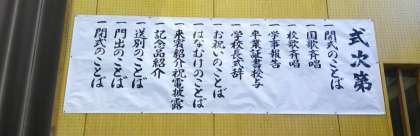 式次第
一 開式のことば
一 国歌斉唱
一 校歌斉唱
一 学事報告
一 卒業証書授与
一 学校長式辞
一 お祝いのことば
一 はなむけのことば
一 来賓紹介祝電披露
一 記念品紹介
一 送別のことば
一 門出のことば
一 閉式のことば